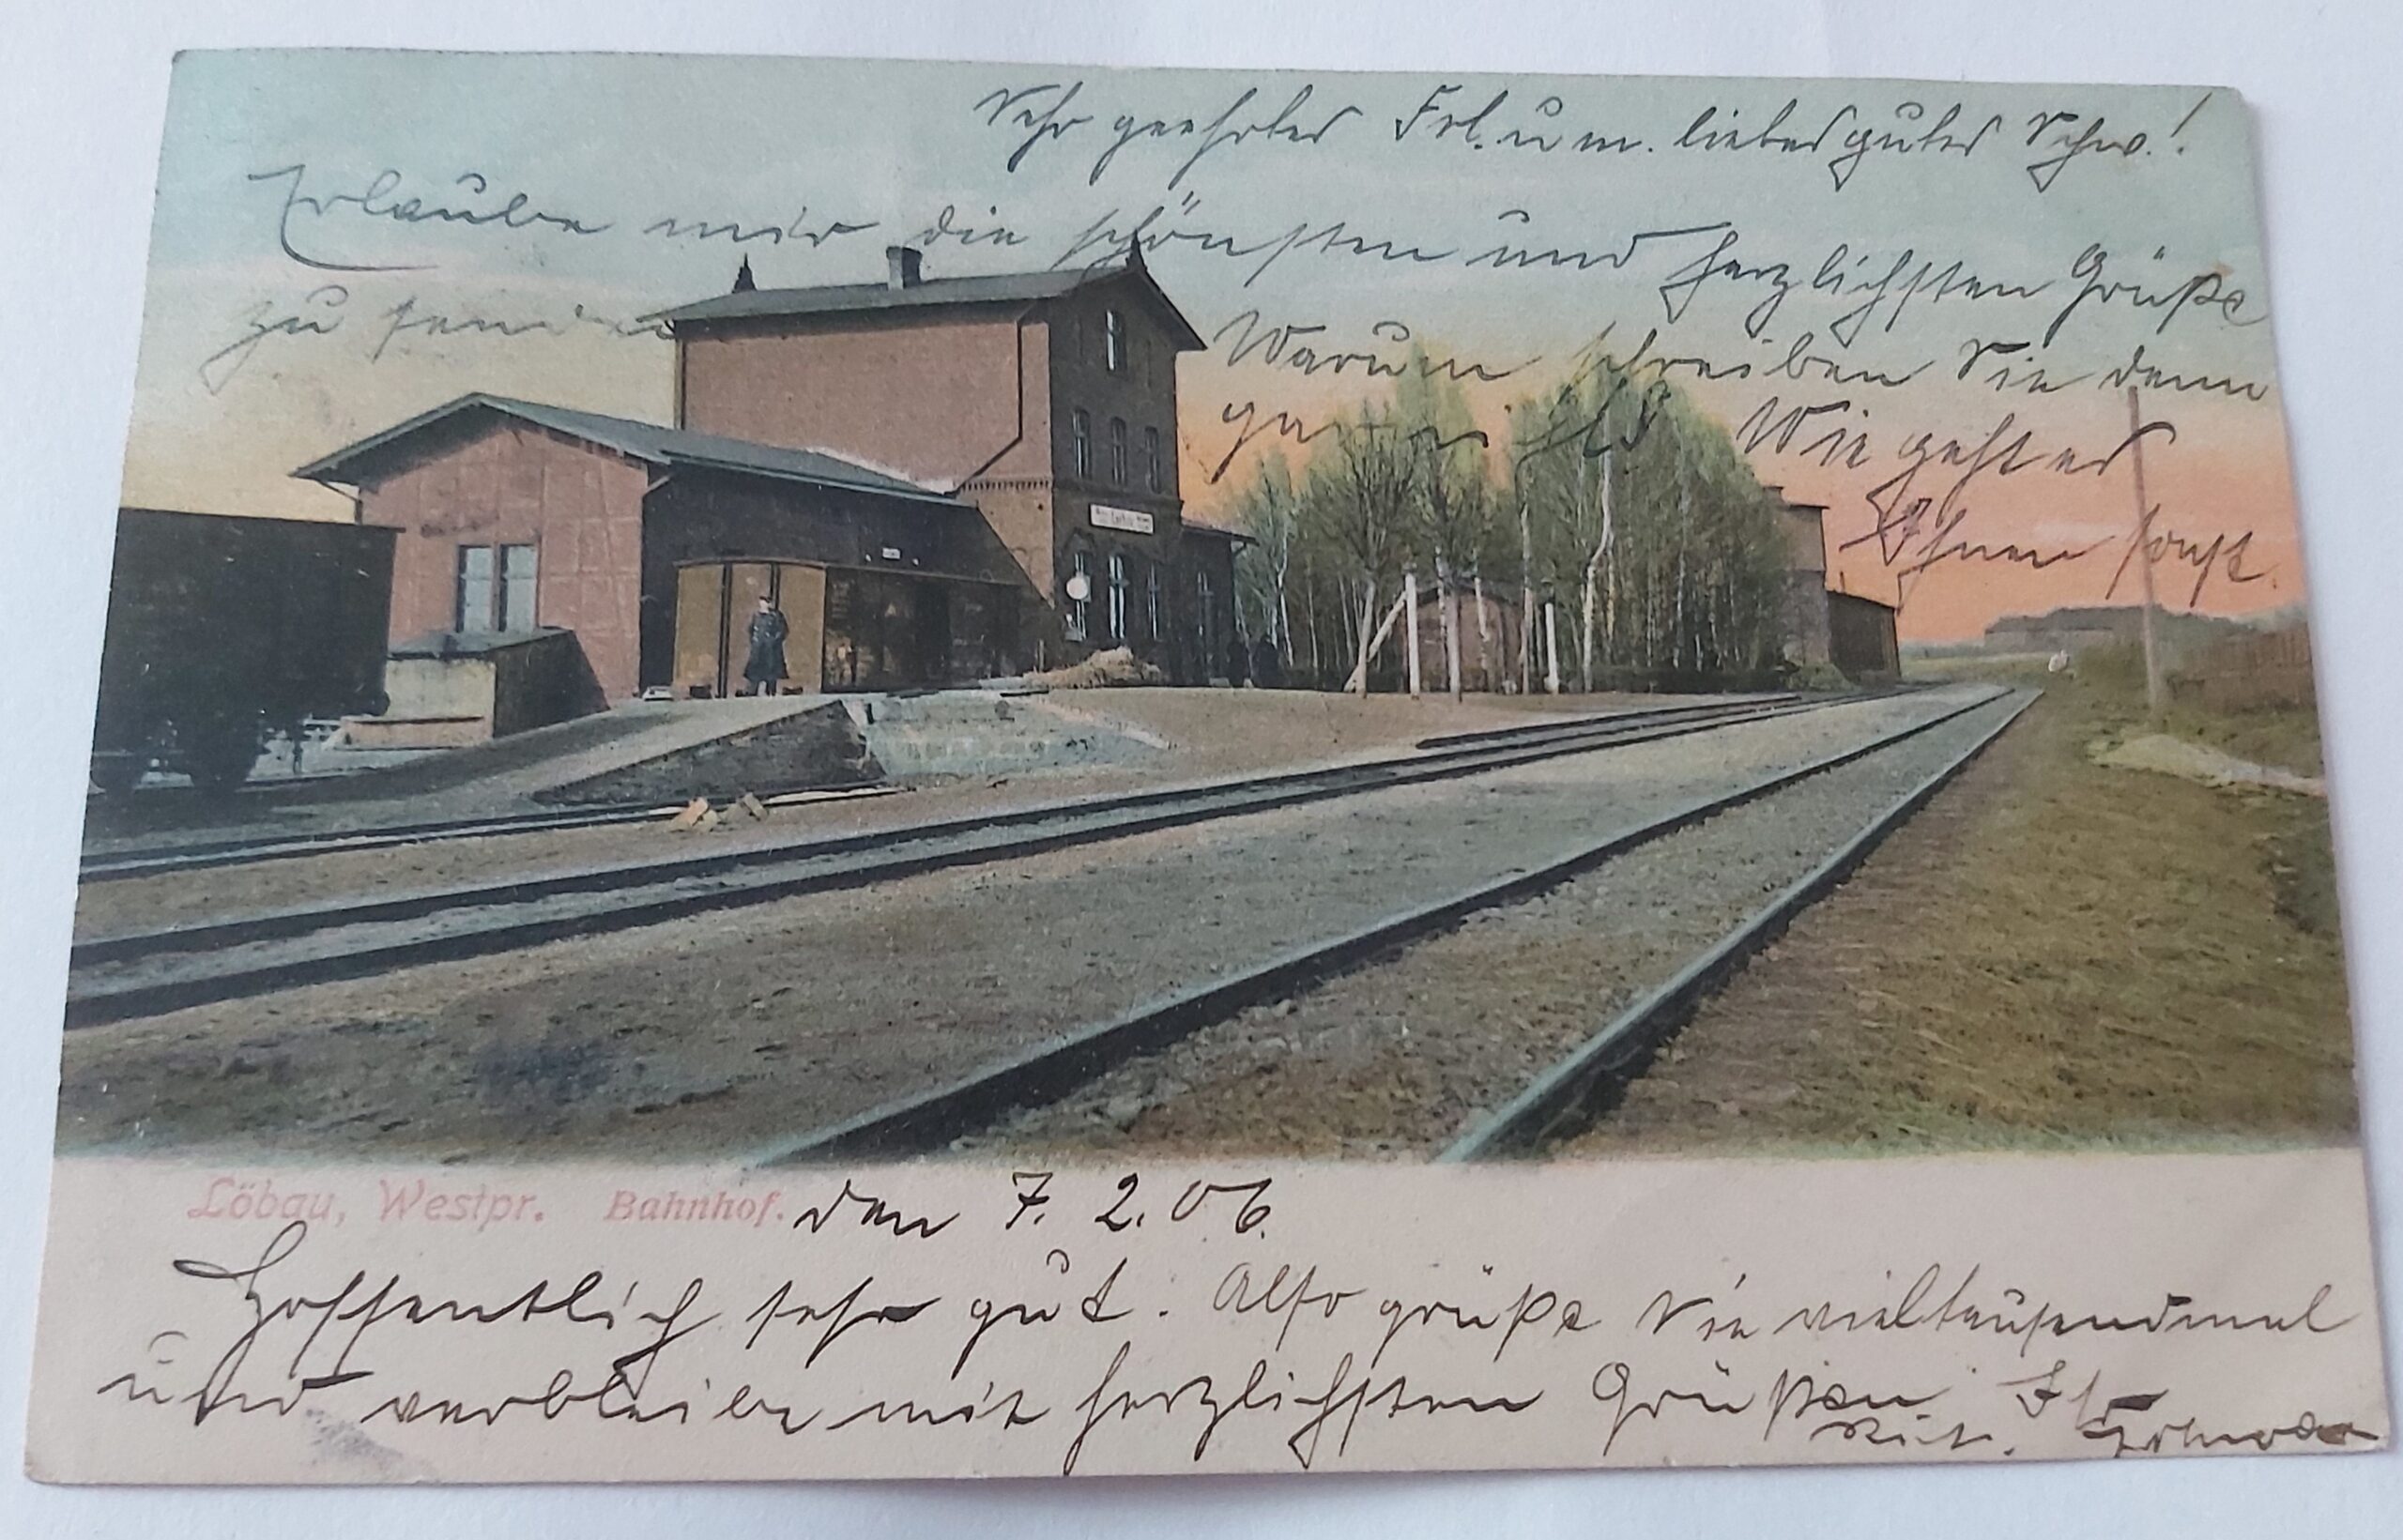 Sehr geehrtes Frl. u m. liebes gutes Schw.!
Erlaube mir die schönsten und herzlichsten Grüße
zu senden
Warum schreiben Sie denn
gar nichts Wie geht es
Ihnen sonst.
Löbau, Westpr. Bahnhof.
den 7. 2. 06.
Hoffentlich sehr gut. Also grüße Sie vieltausendmal
und verbleibe mit herzlichsten Grüßen Ihr